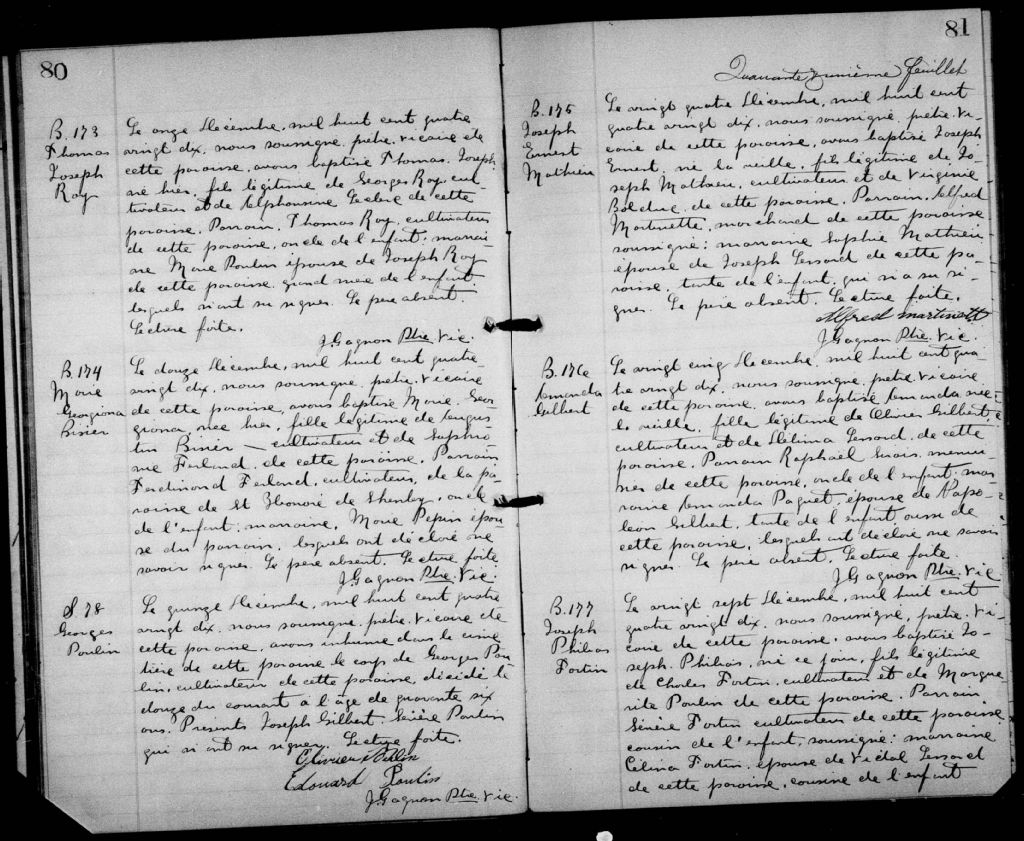 80
B. 173
Thomas
Joseph
Roy
Le onze Décembre, mil huit cent quatre
vingt dix, nous soussigné, prêtre, vicaire de
cette paroisse, avons baptisé Thomas, Joseph
né hier, fils légitime de Georges Roy, cul-
tivateur et de Alphonsine Leclerc de cette
paroisse. Parrain, Thomas Roy, cultivateur
de cette paroisse, oncle de l'enfant; marrai-
ne Marie Poulin épouse de Joseph Roy
de cette paroisse, grand mère de l'enfant,
lesquels n'ont su signer. Le père absent.
Lecture faite.
J. Gagnon Ptre. Vic.
B. 174
Marie
Georgiana
Bisier
Le douze Décembre, mil huit cent quatre
vingt dix, nous soussigné, prêtre, vicaire
de cette paroisse, avons baptisé Marie, Geor-
giana, née hier, fille légitime de Augus-
tin Bisier — cultivateur et de Sophro-
nie Ferland, de cette paroisse. Parrain
Ferdinand Ferland, cultivateur, de la pa-
roisse de St Honoré de Shenley, oncle
de l'enfant; marraine, Marie Pepin épou-
se du parrain, lesquels ont déclaré ne
savoir signer. Le père absent. Lecture faite
J. Gagnon Ptre. Vic.
S. 78
Georges
Poulin
Le quinze Décembre, mil huit cent quatre
vingt dix, nous soussigné, prêtre, vicaire de
cette paroisse, avons inhumé dans le cime
tière de cette paroisse le corps de Georges Pou
lin, cultivateur de cette paroisse, décédé le
douze du courant à l'âge de quarante six
ans. Présents Joseph Gilbert, Sévère Poulin
qui n'ont su signer. Lecture faite.
Edouard Poulin
J. Gagnon Ptre. Vic.
81
Quarante unième feuillet
B. 175
Joseph
Ernest
Mathieu
Le vingt quatre Décembre, mil huit cent
quatre vingt dix, nous soussigné, prêtre, vi-
caire de cette paroisse, avons baptisé Joseph
Ernest, né la veille, fils légitime de Jo-
seph Mathieu, cultivateur et de Virginie
Bolduc, de cette paroisse. Parrain, Alfred
Martinette, marchand de cette paroisse
soussigné; marraine Sophie Mathieu
épouse de Joseph Lessard de cette pa-
roisse, tante de l'enfant, qui n'a su si-
gner. Le père absent. Lecture faite.
Alfred Martinette
J. Gagnon Ptre. Vic.
B. 176
Amanda
Gilbert
Le vingt cinq Décembre, mil huit cent qua-
tre vingt dix, nous soussigné, prêtre, vicaire
de cette paroisse, avons baptisé Amanda née
la veille, fille légitime de Olivier Gilbert,
cultivateur et de Délima Lessard, de cette
paroisse. Parrain Raphaël menui-
sier de cette paroisse, oncle de l'enfant; mar
raine Amanda Paquet, épouse de Napo-
léon Gilbert, tante de l'enfant, aussi de
cette paroisse, lesquels ont déclaré ne savoir
signer. Le père absent. Lecture faite.
J. Gagnon Ptre. Vic
B. 177
Joseph
Philias
Fortin
Le vingt sept Décembre, mil huit cent
quatre vingt dix, nous soussigné, prêtre, vi-
caire de cette paroisse, avons baptisé Jo-
seph, Philias, né ce jour, fils légitime
de Charles Fortin, cultivateur et de Margue
rite Poulin de cette paroisse. Parrain
Sévère Fortin cultivateur de cette paroisse
cousin de l'enfant, soussigné; marraine
Célina Fortin, épouse de Vidal Lessard
de cette paroisse, cousine de l'enfant